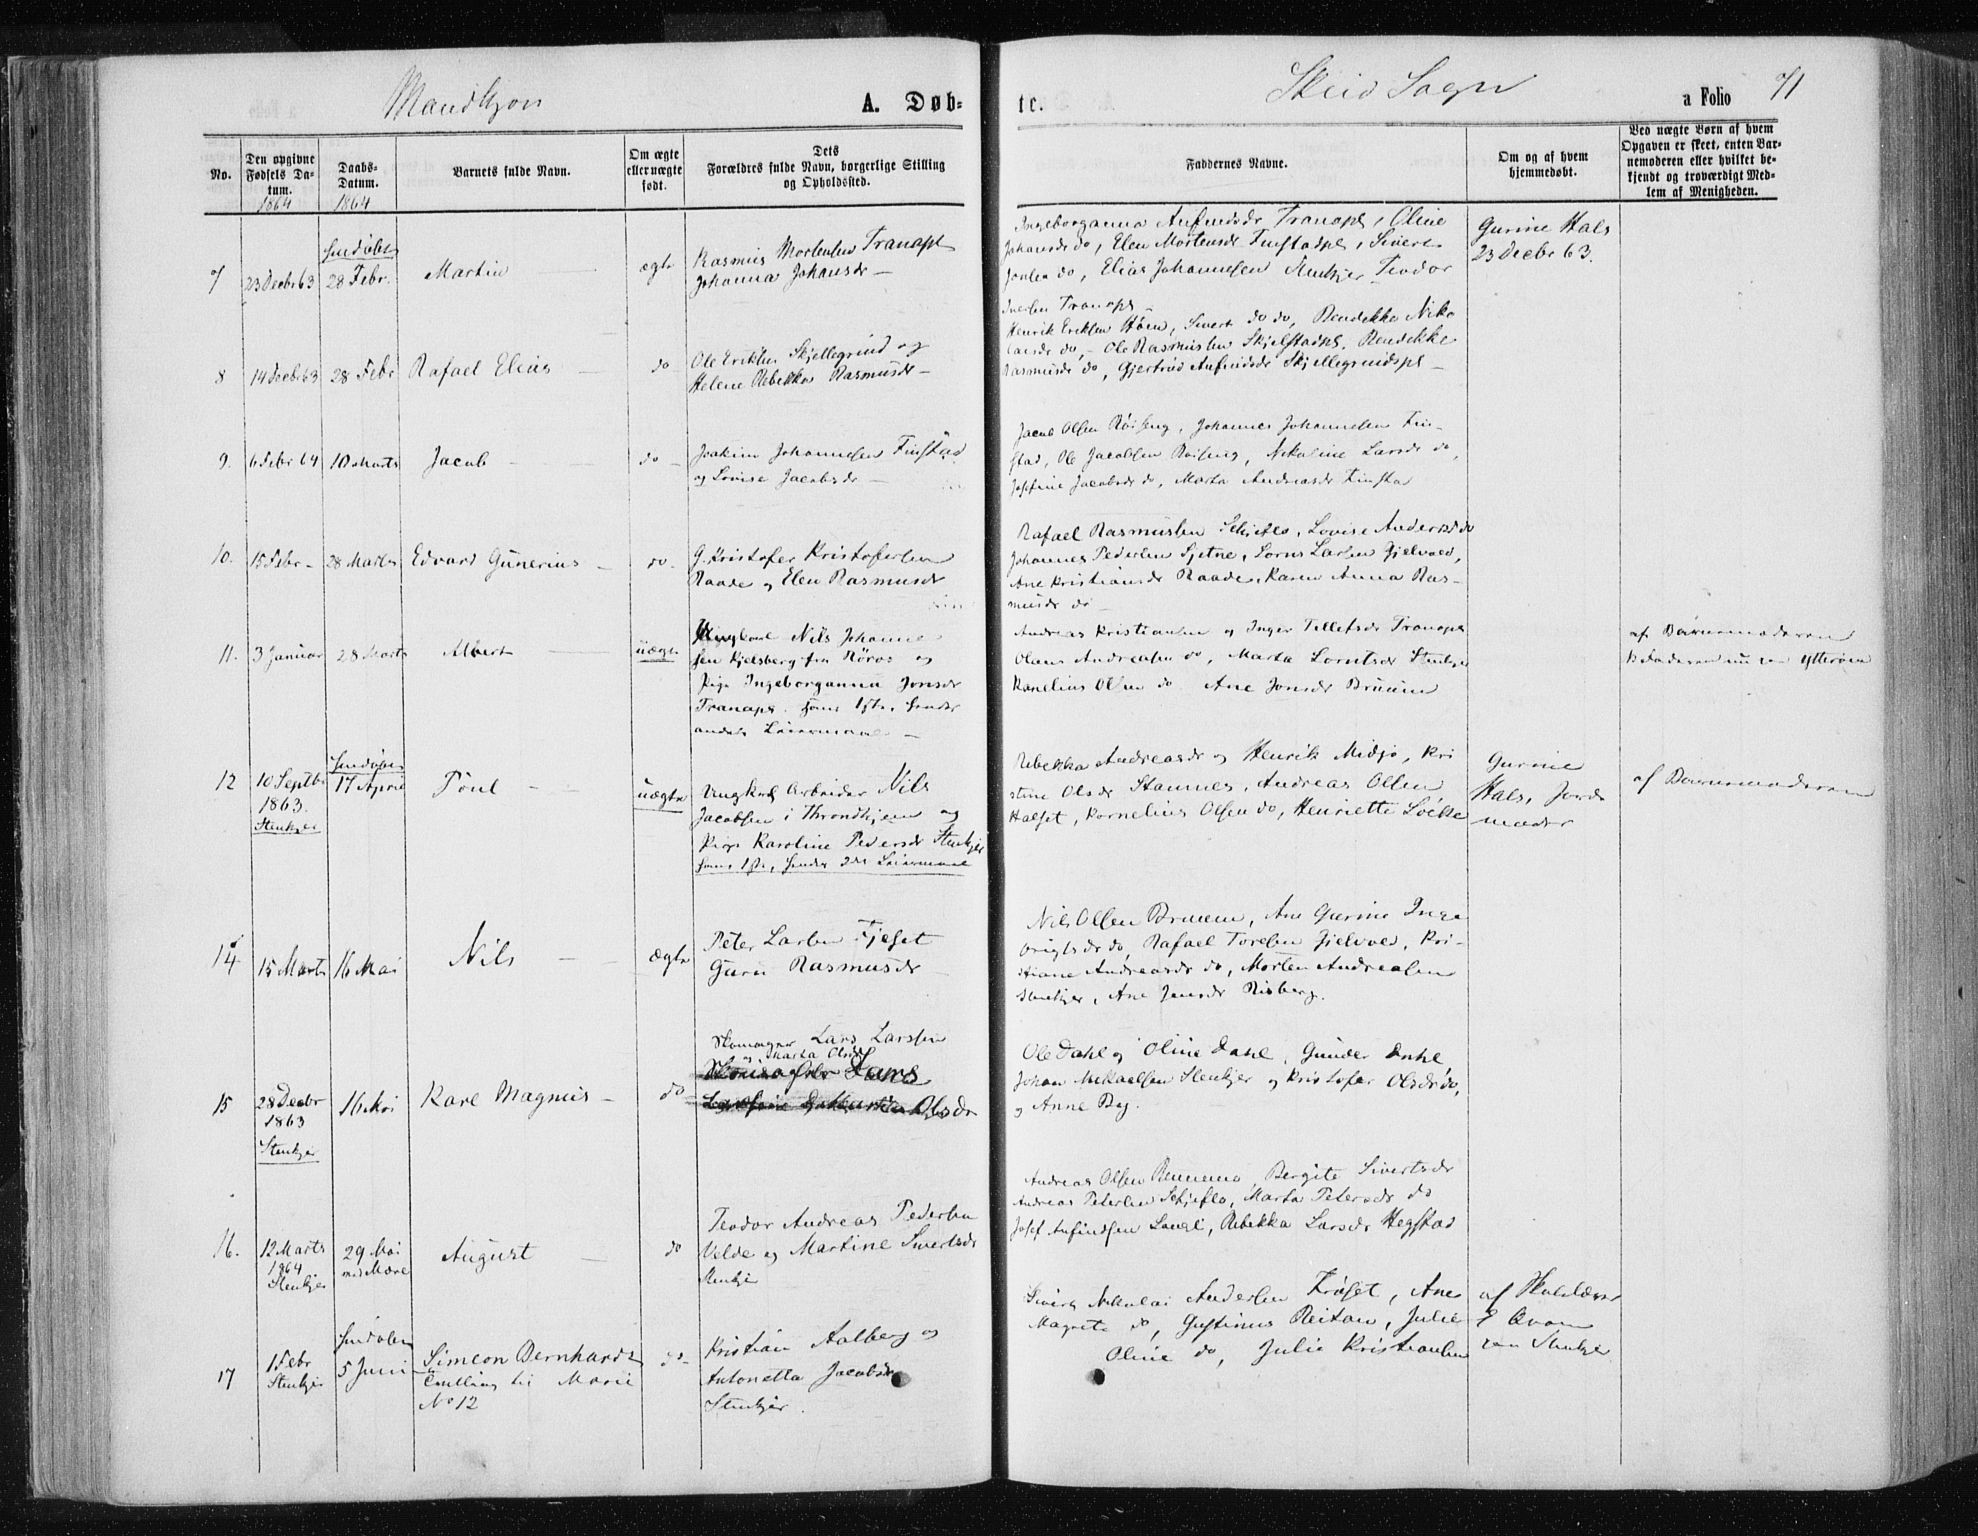 Mandkjøn
A. Døb-
te.
Skeid Sogn
a Folio 71
No.
Den opgivne Fødsels Da-tum. 1864
Daabs-Datum. 1864
Barnets fulde Navn.
Om ægte eller uægte født.
Dets Forældres fulde Navn, borgerlige Stilling og Opholdssted.
Faddernes Navne.
Om og af hvem hjemmedøbt.
Ved uægte Børn af hvem Opgaven er skeet, enten Bar-nemoderen eller hvilket be-kjendt og troværdigt Med-lem af Menigheden.
7
23 Decbr 63
28 Febr.
Martin
ægte
Rasmus Mortensen Tranapl
Johanna Johansdr
Ingeborganna Anfindsdr Tranapl, Oline
Johansdr do, Elen Mortensdr Finstadpl, Sivert
Jonsen do, Elias Johannesen Stenkjer Teodor
Iversen Tranapl
Gurine Hals
23 Decbr 63.
8
14 Decbr 63
28 Febr
Rafael Elias
do
Ole Eriksen Skjellegrind og
Helene Rebekka Rasmusdr
Henrik Eriksen Høen, Sivert do do, Bendekka Niko
laisdr do, Ole Rasmussen Skjelstadpl, Bendekke
Rasmusdr do, Gjertrud Anfindsdr Skjellegrindspl
9.
6 Febr 64
10 Marts
Jacob
do
Joakim Johannesen Finstad
og Lovise Jacobsdr
Jacob Olsen Røising, Johannes Johannesen Fin-
stad, Ole Jacobsen Røising, Nikoline Larsdr do,
Josefine Jacobsdr do, Marta Andreasdr Finstad
10.
15 Febr
28 Marts
Edvard Gunerius
do
G. Kristofer Kristofersen
Raade og Elen Rasmusdr
Rafael Rasmussen Skjeflo, Lovise Andersdr do
Johannes Pedersen Sjetne, Lorns Larsen Gjelvold,
Ane Kristiansdr Raade, Karen Anna Ras-
musdr do
11.
3 Januar
28 Marts
Albert
uægte
Ungkarl Nils Johanne
sen Kjelsberg fra Røros og
Pige Ingeborganna Jonsdr
Tranapl. hans 1ste, hendes
andet Leiermaal
Andreas Kristiansen og Inger Tellefsdr Tranapl
Olaus Andreasen do, Marta Lorntsdr Stenkjer
Kornelius Olsen do Ane Jonsdr Bruem
af Barnemoderen
12
10 Septbr
1863.
Stenkjer
17 April
Poul
uægte
Ungkarl Arbeider Nils
Jacobsen i Throndhjem og
Pige Karoline Pedersdr Stenkjer
hans 1ste, hendes 2det Leiermaal
Rebekka Andreasdr og Henrik Midjo, Kri
stine Olsdr Stamnes, Andreas Olsen
Halset, Kornelius Olsen do, Henriette Løkke
Gurine
Hals, Jorde
moder
af Barnemoderen
14
15 Marts
16 Mai
Nils
ægte
Peter Larsen Fjeset
Guru Rasmusdr
Nils Olsen Bruem, Ane Gurine Inge
brigtsdr do, Rafael Toresen Gjelvold, Kri-
stiane Andreasdr do, Morten Andreasen
Stenkjer, Ane Jensdr Risberg.
15
28 Decbr
1863
Stenkjer
16 Mai
Karl Magnus
do
Skomager Lars Larssen
og Marta Olsdr
Ole Dahl og Oline Dahl, Gunder Dahl
Johan Mikaelsen Stenkjer og Kristofer Olsdr do,
og Anne By.
16.
12 Marts
1864
Stenkjer
29 Mai
ved Mære
August
do
Teodor Andreas Pedersen
Velde og Martine Sivertsdr
Stenkjer
Andreas Olsen, Bergite Sivertsdr
Andreas Petersen Skjeflo, Marta Petersdr do
Josef Anfindsen Langli, Rebekka Larsdr Hegstad
17
1 Febr
Stenkjer
5 Juni
Simeon Bernhard
Tvilling til Marie
No 12
do
Kristian Aalberg og
Antonetta Jacobsdr
Stenkjer.
Sivert Nikolai Andersen Frøset, Ane
Magrete do, Gustinus Reitan, Julie
Oline do, Julie Kristiansen
af Skolelærer
Qvam
Stenkjer